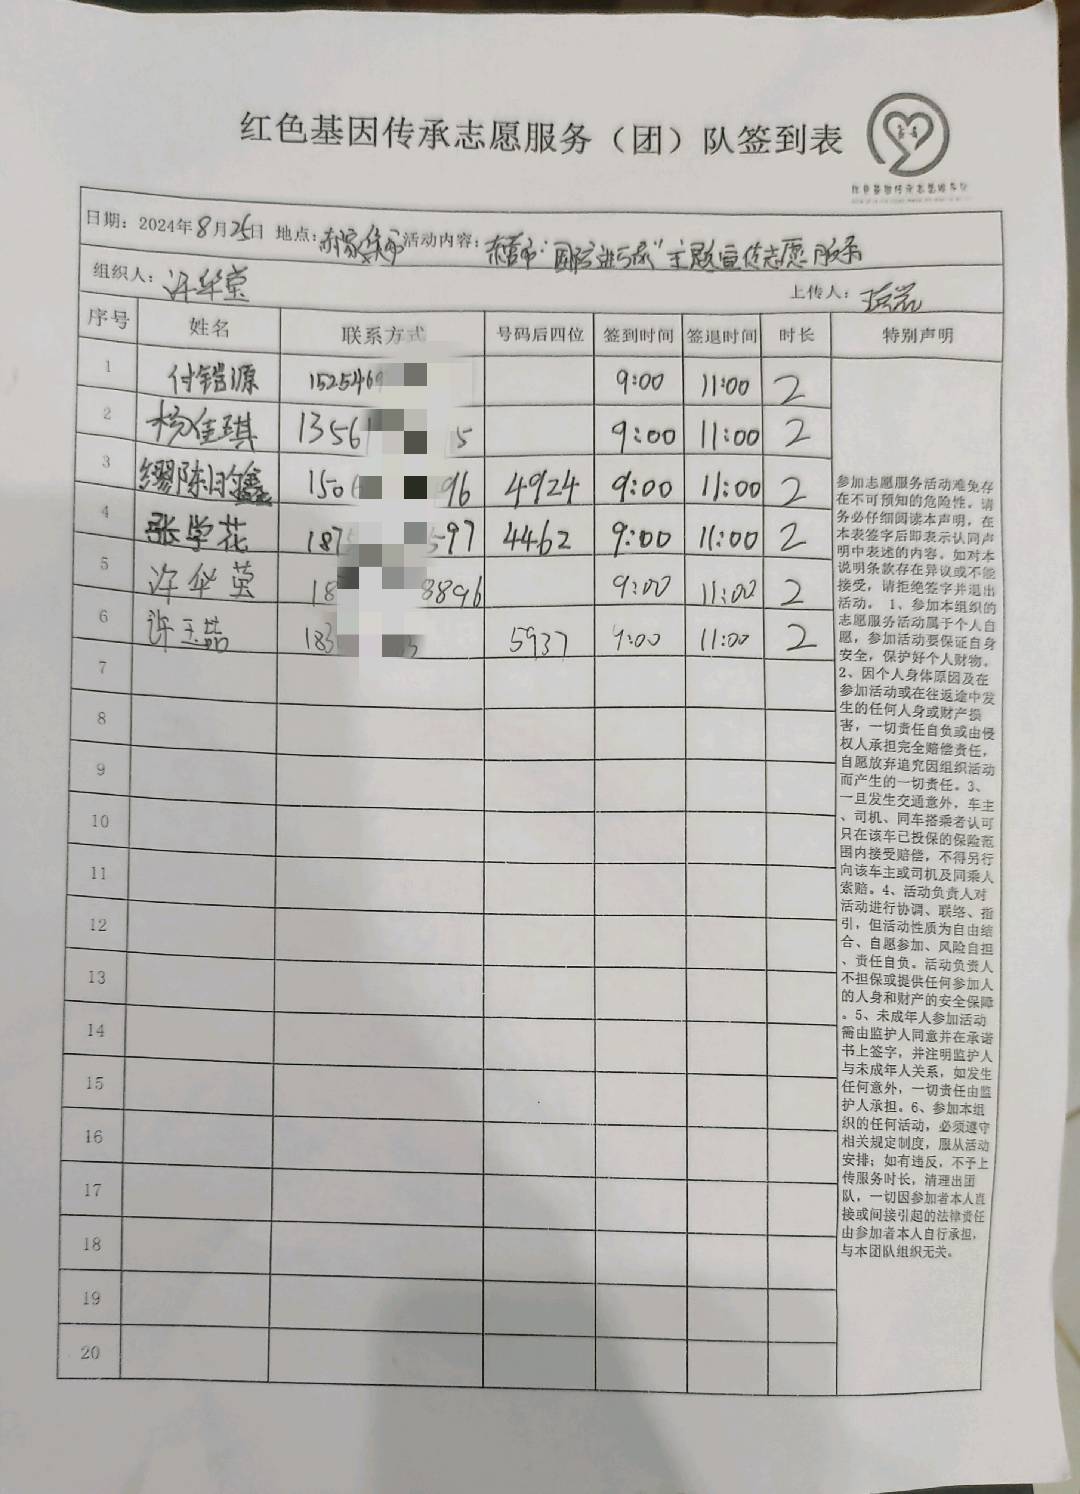 红色基因传承志愿服务（团）队签到表
日期：2024年8月25日 地点： 活动内容： 主题宣传志愿服务
组织人：许华莹 上传人：
序号 姓名 联系方式 号码后四位 签到时间 签退时间 时长 特别声明
1 付锆源 1525469 9:00 11:00 2
2 杨佳琪 1356 5 9:00 11:00 2
3 缪陈昀鑫 150 96 4924 9:00 11:00 2
4 张学花 187 597 4462 9:00 11:00 2
5 许华莹 18 8896 9:00 11:00 2
6 许玉喆 183 3 5937 9:00 11:00 2
7
8
9
10
11
12
13
14
15
16
17
18
19
20
参加志愿服务活动难免存
在不可预知的危险性。请
务必仔细阅读本声明，在
本表签字后即表示认同声
明中表述的内容。如对本
说明条款存在异议或不能
接受，请拒绝签字并退出
活动。 1、参加本组织的
志愿服务活动属于个人自
愿，参加活动要保证自身
安全，保护好个人财物。
2、因个人身体原因及在
参加活动或在往返途中发
生的任何人身或财产损
害，一切责任自负或由侵
权人承担完全赔偿责任，
自愿放弃追究因组织活动
而产生的一切责任。3、
一旦发生交通意外，车主
、司机、同车搭乘者认可
只在该车已投保的保险范
围内接受赔偿，不得另行
向该车主或司机及同乘人
索赔。4、活动负责人对
活动进行协调、联络、指
引，但活动性质为自由结
合、自愿参加、风险自担
、责任自负。活动负责人
不担保或提供任何参加人
的人身和财产的安全保障
。5、未成年人参加活动
需由监护人同意并在承诺
书上签字，并注明监护人
与未成年人关系，如发生
任何意外，一切责任由监
护人承担。6、参加本组
织的任何活动，必须遵守
相关规定制度，服从活动
安排；如有违反，不予上
传服务时长，清理出团
队，一切因参加者本人直
接或间接引起的法律责任
由参加者本人自行承担，
与本团队组织无关。